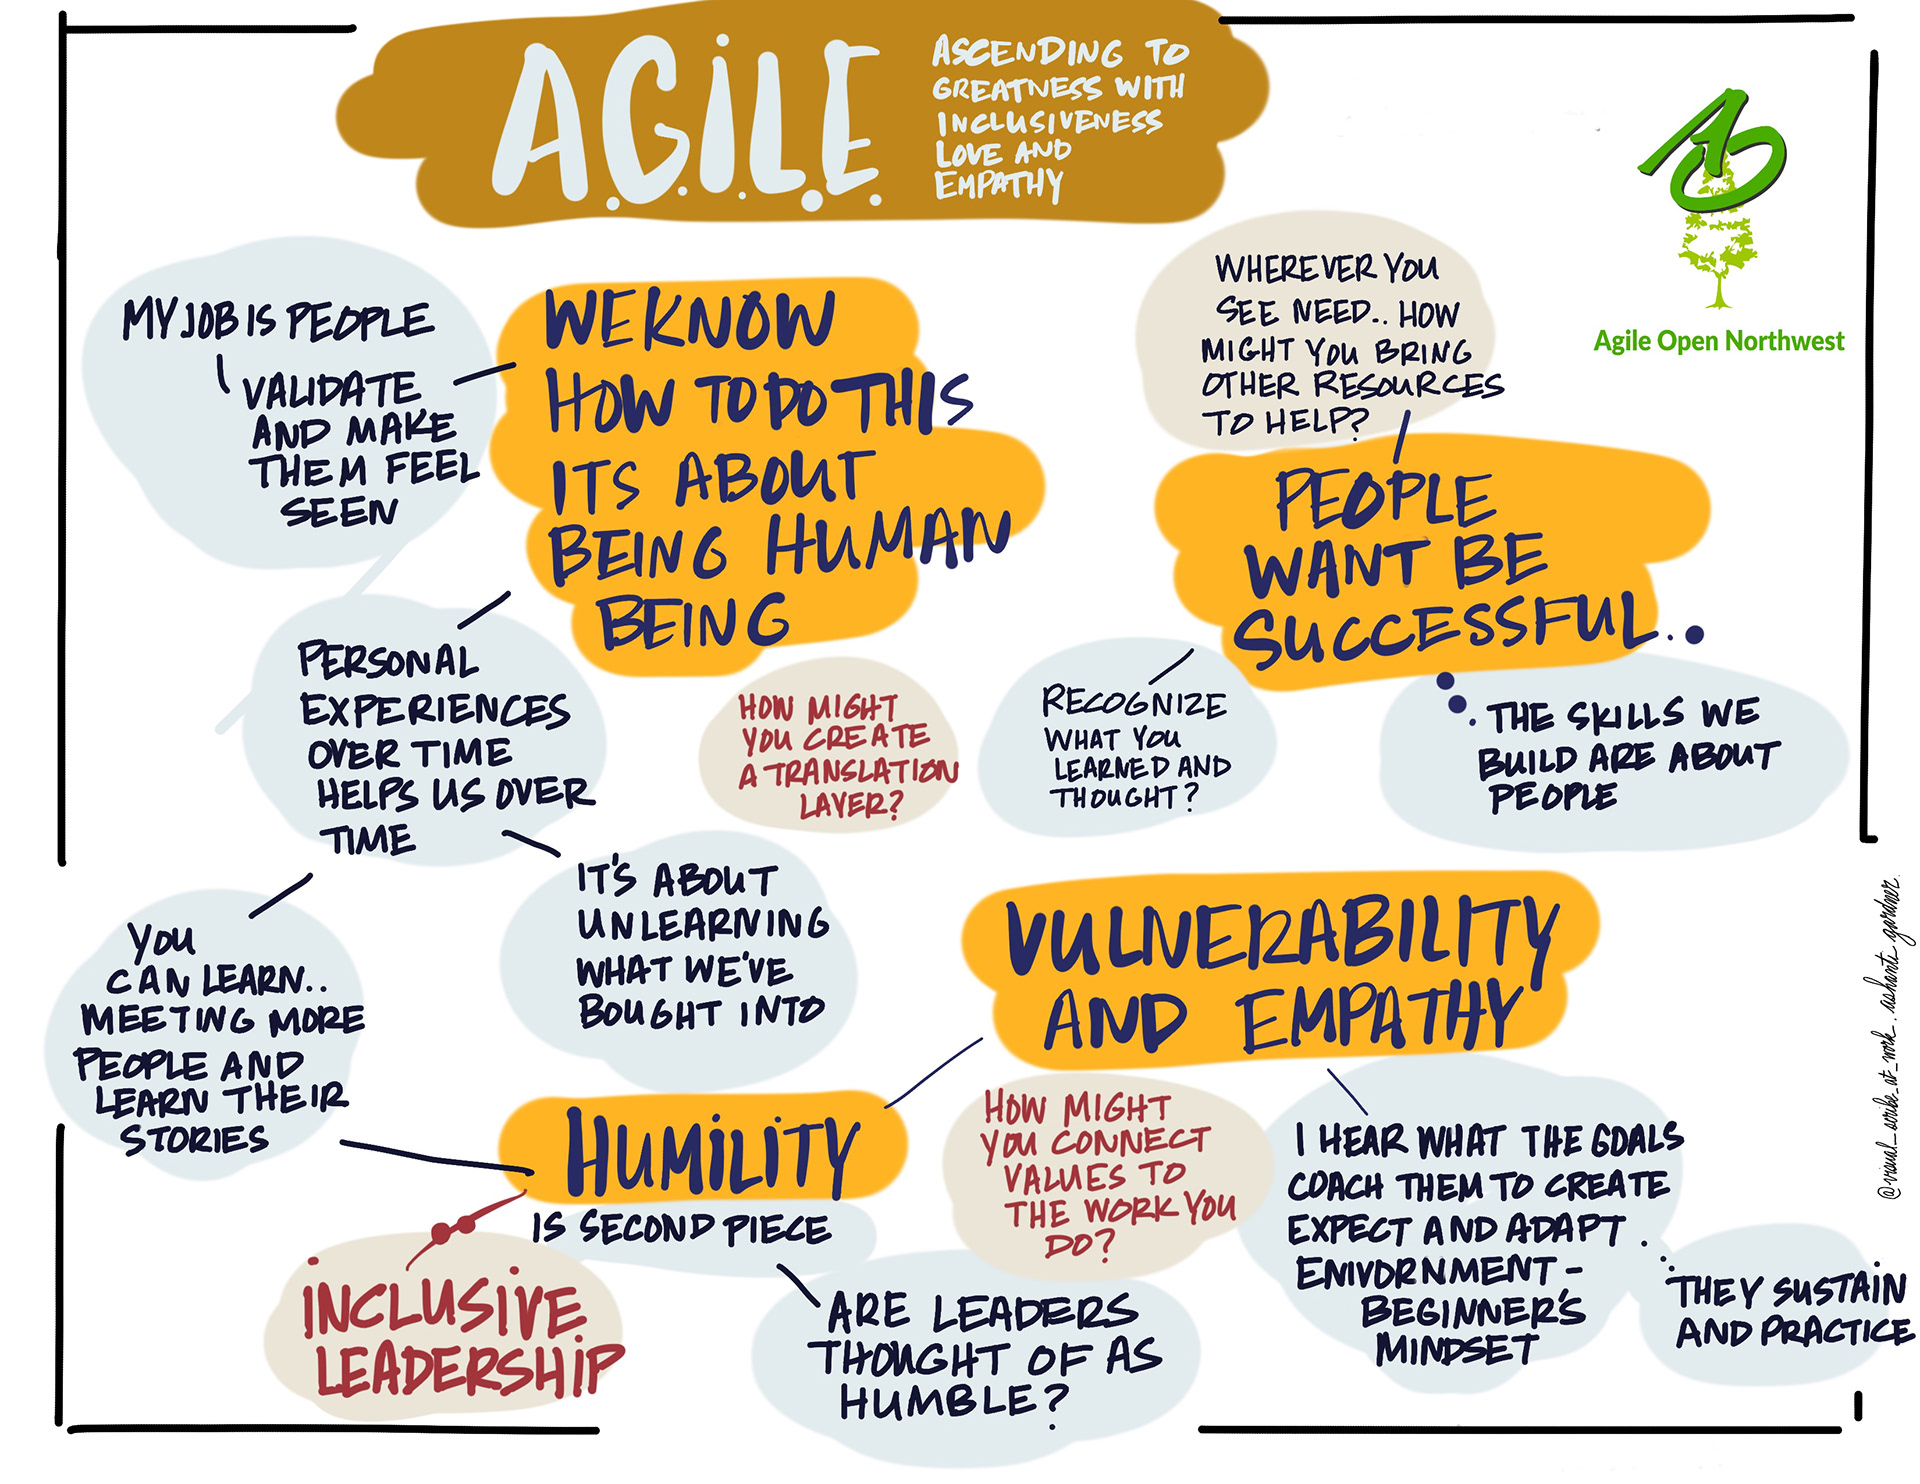 A.G.i.L.E.
ASCENDING TO
GREATNESS WITH
INCLUSIVENESS
LOVE AND
EMPATHY
Agile Open Northwest
MY JOB IS PEOPLE
VALIDATE
AND MAKE
THEM FEEL
SEEN
WE KNOW
HOW TO DO THIS
ITS ABOUT
BEING HUMAN
BEING
WHEREVER YOU
SEE NEED.. HOW
MIGHT YOU BRING
OTHER RESOURCES
TO HELP?
PEOPLE
WANT BE
SUCCESSFUL...
PERSONAL
EXPERIENCES
OVER TIME
HELPS US OVER
TIME
HOW MIGHT
YOU CREATE
A TRANSLATION
LAYER?
RECOGNIZE
WHAT YOU
LEARNED AND
THOUGHT?
THE SKILLS WE
BUILD ARE ABOUT
PEOPLE
YOU
CAN LEARN..
MEETING MORE
PEOPLE AND
LEARN THEIR
STORIES
IT'S ABOUT
UNLEARNING
WHAT WE'VE
BOUGHT INTO
VULNERABILITY
AND EMPATHY
HUMILITY
IS SECOND PIECE
INCLUSIVE
LEADERSHIP
ARE LEADERS
THOUGHT OF AS
HUMBLE?
HOW MIGHT
YOU CONNECT
VALUES TO
THE WORK YOU
DO?
I HEAR WHAT THE GOALS
COACH THEM TO CREATE
EXPECT AND ADAPT.
ENIVORNMENT -
BEGINNER'S
MINDSET
THEY SUSTAIN
AND PRACTICE
@visual_scribe_at_work. ashanti gardner.